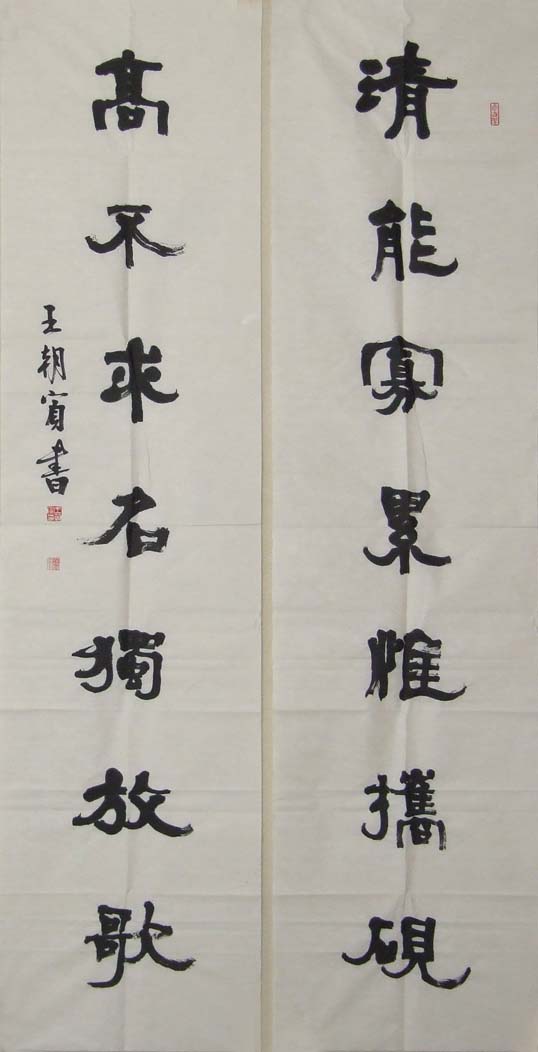 清能寡累惟攜硯
高不求名獨放歌
王朝賓書